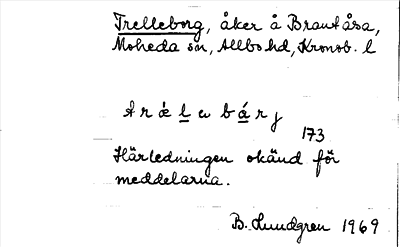 Trelleborg, åker å Brantåsa,
Moheda sn, Allbo hd, Kronob. l
173
Härledningen okänd för
meddelarna.
B. Lundgren 1969